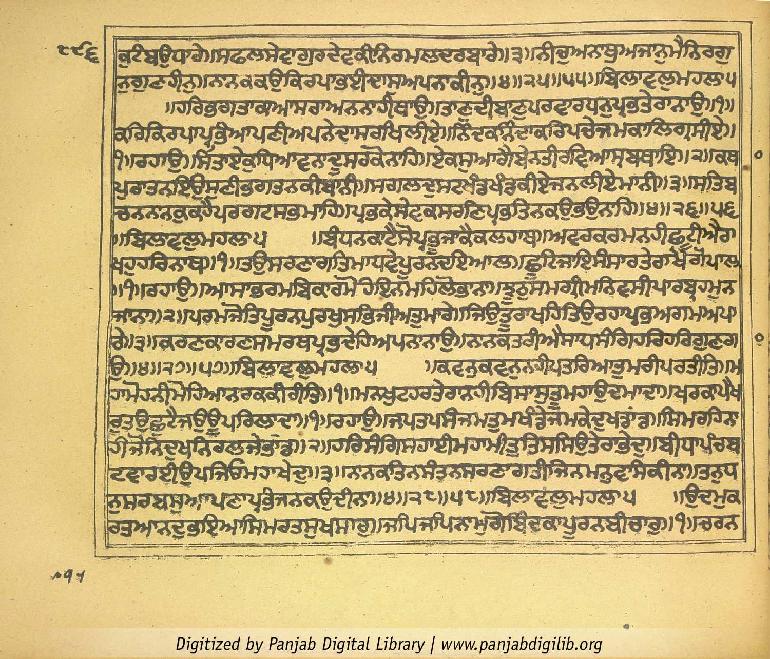 ੮੯੬
ਕੁਟੰਬਉਧਾਰੇ॥ਸਫਲਸੇਵਾਗੁਰਦੇਵਕੀਨਿਰਮਲਦਰਬਾਰੇ॥੩॥ਨੀਚੁਅਨਾਥੁਅਜਾਨੁਮੈਨਿਰਗੁ
ਨੁਗੁਣਹੀਨੁ॥ਨਾਨਕਕਉਕਿਰਪਾਭਈਦਾਸੁਅਪਨਾਕੀਨੁ॥੪॥੨੫॥੫੫॥ਬਿਲਾਵਲੁਮਹਲਾ੫
॥ਹਰਿਭਗਤਾਕਾਆਸਰਾਅਨਨਾਹੀਠਾਉ॥ਤਾਣੁਦੀਬਾਣੁਪਰਵਾਰਧਨੁਪ੍ਰਭਤੇਰਾਨਾਉ॥੧॥
ਕਰਿਕਿਰਪਾਪ੍ਰਭਿਆਪਣੀਅਪਨੇਦਾਸਰਖਿਲੀਏ॥ਨਿੰਦਕਨਿੰਦਾਕਰਿਪਚੇਜਮਕਾਲਿਗ੍ਰਸੀਏ॥
੧॥ਰਹਾਉ॥ਸੰਤਾਏਕੁਧਿਆਵਨਾਦੂਸਰਕੋਨਾਹਿ॥ਏਕਸੁਆਗੈਬੇਨਤੀਰਵਿਆਸ੍ਰਬਥਾਇ॥੨॥ਕਥਾ
ਪੁਰਾਤਨਇਉਸੁਣੀਭਗਤਨਕੀਬਾਨੀ॥ਸਗਲਦੁਸਟਖੰਡਖੰਡਕੀਏਜਨਲੀਏਮਾਨੀ॥੩॥ਸਤਿਬ
ਚਨਨਾਨਕੁਕਹੈਪਰਗਟਸਭਮਾਹਿ॥ਪ੍ਰਭਕੇਸੇਵਕਸਰਣਿਪ੍ਰਭਤਿਨਕਉਭਉਨਾਹਿ॥੪॥੨੬॥੫੬
॥ਬਿਲਾਵਲੁਮਹਲਾ੫ ॥ਬੰਧਨਕਾਟੈਸੋਪ੍ਰਭੂਜਾਕੈਕਲਹਾਥ॥ਅਵਰਕਰਮਨਹੀਛੂਟੀਐਰਾ
ਖਹੁਹਰਿਨਾਥ॥੧॥ਤਉਸਰਣਾਗਤਿਮਾਧਵੇਪੂਰਨਦਇਆਲ॥ਛੂਟਿਜਾਇਸੰਸਾਰਤੇਰਾਖੈਗੋਪਾਲ
॥੧॥ਰਹਾਉ॥ਆਸਾਭਰਮਬਿਕਾਰਮੋਹਇਨਮਹਿਲੋਭਾਨਾ॥ਝੂਠੁਸਮਗ੍ਰੀਮਨਿਵਸੀਪਾਰਬ੍ਰਹਮੁਨ
ਜਾਨਾ॥੨॥ਪਰਮਜੋਤਿਪੂਰਨਪੁਰਖਸਭਿਜੀਅਤੁਮਾਰੇ॥ਜਿਉਤੂਰਾਖਹਿਤਿਉਰਹਾਪ੍ਰਭਅਗਮਅਪਾ
ਰੇ॥੩॥ਕਰਣਕਾਰਣਸਮਰਥਪ੍ਰਭਦੇਹਿਅਪਨਾਨਾਉ॥ਨਾਨਕਤਰੀਐਸਾਧਸੰਗਿਹਰਿਹਰਿਗੁਣਗਾ
ਉ॥੪॥੨੭॥੫੭॥ਬਿਲਾਵਲੁਮਹਲਾ੫ ॥ਕਵਨੁਕਵਨੁਨਹੀਪਤਰਿਆਤੁਮ੍ਹਰੀਪਰਤੀਤਿ॥ਮ
ਹਾਮੋਹਨੀਮੋਹਿਆਨਰਕਕੀਰੀਤਿ॥੧॥ਮਨਖੁਟਹਰਤੇਰਾਨਹੀਬਿਸਾਸੁਤੂਮਹਾਉਦਮਾਦਾ॥ਖਰਕਾਪੈਖ
ਰੁਤਉਛੁਟੈਜਉਊਪਰਿਲਾਦਾ॥੧॥ਰਹਾਉ॥ਜਪਤਪਸੰਜਮਤੁਮ੍ਹਖੰਡੇਜਮਕੇਦੁਖਡਾਂਡ॥ਸਿਮਰਹਿਨਾ
ਹੀਜੋਨਿਦੁਖਨਿਰਲਜੇਭਾਂਡ॥੨॥ਹਰਿਸੰਗਿਸਹਾਈਮਹਾਮੀਤੁਤਿਸਸਿਉਤੇਰਾਭੇਦੁ॥ਬੀਧਾਪੰਚਬ
ਟਵਾਰਈਉਪਜਿਓਮਹਾਖੇਦੁ॥੩॥ਨਾਨਕਤਿਨਸੰਤਨਸਰਣਾਗਤੀਜਿਨਮਨੁਵਸਿਕੀਨਾ॥ਤਨੁਧ
ਨੁਸਰਬਸੁਆਪਣਾਪ੍ਰਭਿਜਨਕਉਦੀਨਾ॥੪॥੨੮॥੫੮॥ਬਿਲਾਵਲੁਮਹਲਾ੫ ॥ਉਦਮੁਕ
ਰਤਆਨਦੁਭਇਆਸਿਮਰਤਸੁਖਸਾਰੁ॥ਜਪਿਜਪਿਨਾਮੁਗੋਬਿੰਦਕਾਪੂਰਨਬੀਚਾਰੁ॥੧॥ਚਰਨ
Digitized by Panjab Digital Library | www.panjabdigilib.org